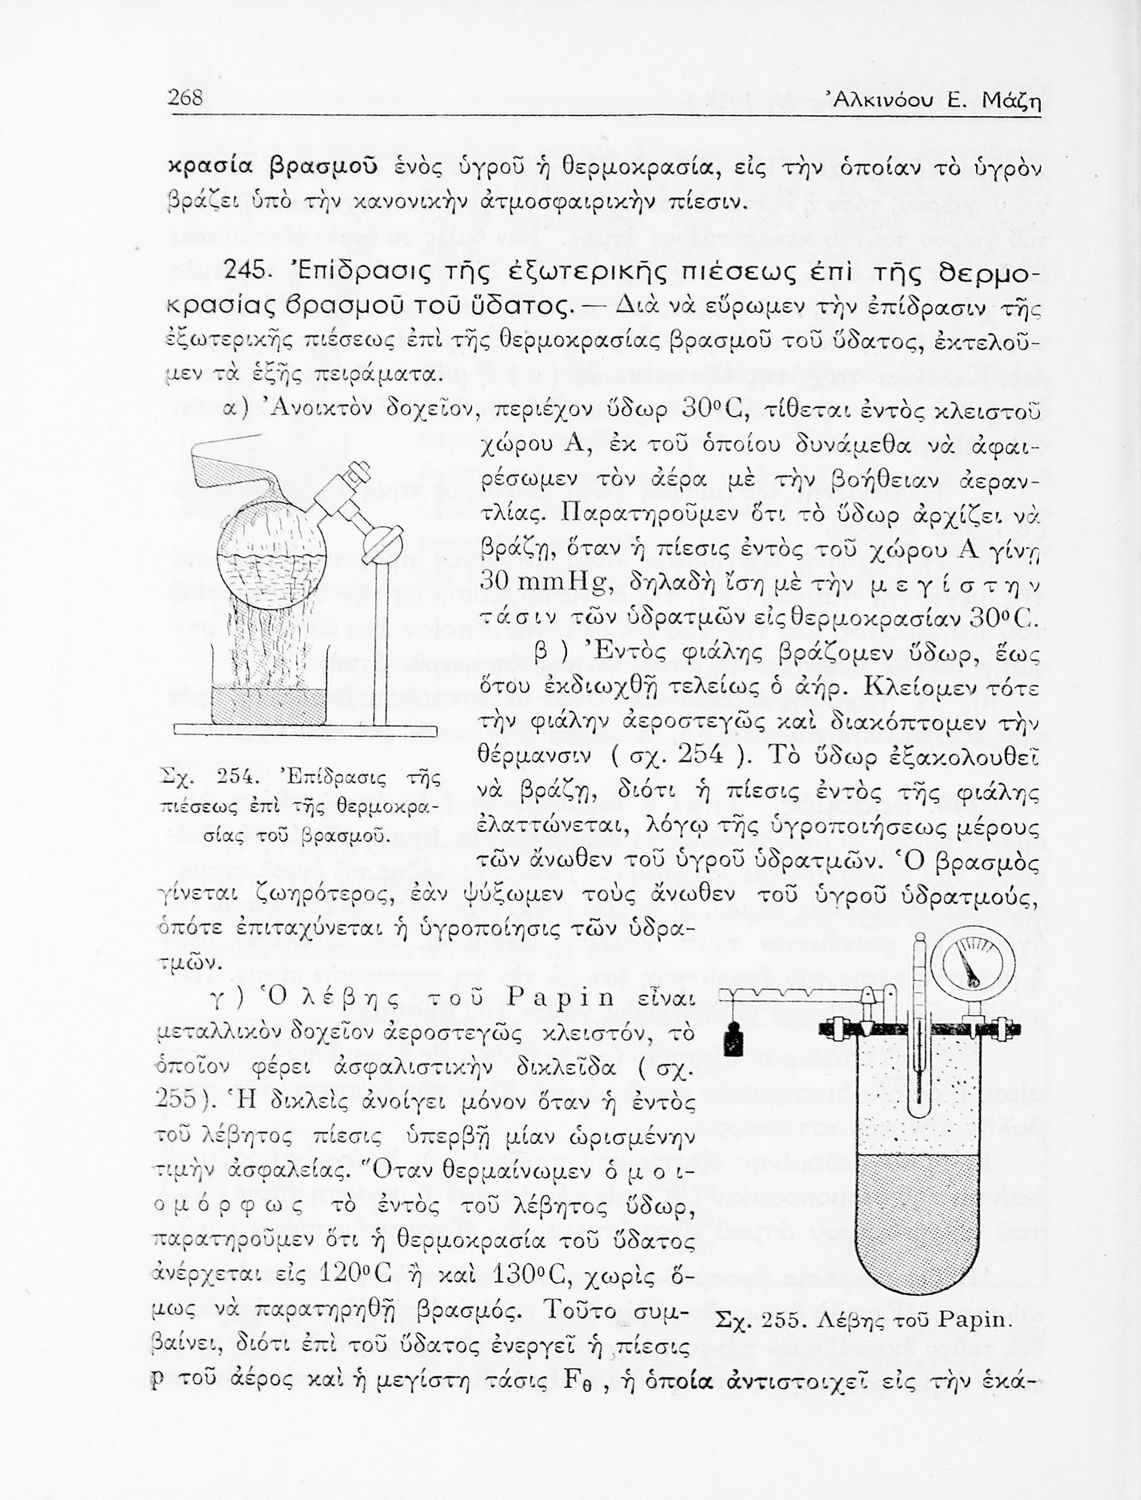 268
Ἀλκινόου Ε. Μάζη
κρασία βρασμοῦ ἑνὸς ὑγροῦ ἡ θερμοκρασία, εἰς τὴν ὁποίαν τὸ ὑγρὸν
βράζει ὑπὸ τὴν κανονικὴν ἀτμοσφαιρικὴν πίεσιν.
245. Ἐπίδρασις τῆς ἐξωτερικῆς πιέσεως ἐπὶ τῆς θερμο-
κρασίας βρασμοῦ τοῦ ὕδατος. — Διὰ νὰ εὕρωμεν τὴν ἐπίδρασιν τῆς
ἐξωτερικῆς πιέσεως ἐπὶ τῆς θερμοκρασίας βρασμοῦ τοῦ ὕδατος, ἐκτελοῦ-
μεν τὰ ἑξῆς πειράματα.
α) Ἀνοικτὸν δοχεῖον, περιέχον ὕδωρ 30°C, τίθεται ἐντὸς κλειστοῦ
χώρου Α, ἐκ τοῦ ὁποίου δυνάμεθα νὰ ἀφαι-
ρέσωμεν τὸν ἀέρα μὲ τὴν βοήθειαν ἀεραν-
τλίας. Παρατηροῦμεν ὅτι τὸ ὕδωρ ἀρχίζει νὰ
βράζῃ, ὅταν ἡ πίεσις ἐντὸς τοῦ χώρου Α γίνῃ
30 mmHg, δηλαδὴ ἴση μὲ τὴν μ ε γ ί σ τ η ν
τ ά σ ι ν τῶν ὑδρατμῶν εἰς θερμοκρασίαν 30°C.
β ) Ἐντὸς φιάλης βράζομεν ὕδωρ, ἕως
ὅτου ἐκδιωχθῇ τελείως ὁ ἀήρ. Κλείομεν τότε
τὴν φιάλην ἀεροστεγῶς καὶ διακόπτομεν τὴν
θέρμανσιν ( σχ. 254 ). Τὸ ὕδωρ ἐξακολουθεῖ
νὰ βράζῃ, διότι ἡ πίεσις ἐντὸς τῆς φιάλης
ἐλαττώνεται, λόγῳ τῆς ὑγροποιήσεως μέρους
τῶν ἄνωθεν τοῦ ὑγροῦ ὑδρατμῶν. Ὁ βρασμὸς
Σχ. 254. Ἐπίδρασις τῆς
πιέσεως ἐπὶ τῆς θερμοκρα-
σίας τοῦ βρασμοῦ.
γίνεται ζωηρότερος, ἐὰν ψύξωμεν τοὺς ἄνωθεν τοῦ ὑγροῦ ὑδρατμούς,
ὁπότε ἐπιταχύνεται ἡ ὑγροποίησις τῶν ὑδρα-
τμῶν.
γ ) Ὁ λ έ β η ς τ ο ῦ P a p i n εἶναι
μεταλλικὸν δοχεῖον ἀεροστεγῶς κλειστόν, τὸ
ὁποῖον φέρει ἀσφαλιστικὴν δικλεῖδα ( σχ.
255). Ἡ δικλεὶς ἀνοίγει μόνον ὅταν ἡ ἐντὸς
τοῦ λέβητος πίεσις ὑπερβῇ μίαν ὡρισμένην
τιμὴν ἀσφαλείας. Ὅταν θερμαίνωμεν ὁ μ ο ι-
ο μ ό ρ φ ω ς τὸ ἐντὸς τοῦ λέβητος ὕδωρ,
παρατηροῦμεν ὅτι ἡ θερμοκρασία τοῦ ὕδατος
ἀνέρχεται εἰς 120°C ἢ καὶ 130°C, χωρὶς ὅ-
μως νὰ παρατηρηθῇ βρασμός. Τοῦτο συμ-
βαίνει, διότι ἐπὶ τοῦ ὕδατος ἐνεργεῖ ἡ πίεσις
p τοῦ ἀέρος καὶ ἡ μεγίστη τάσις Fθ , ἡ ὁποία ἀντιστοιχεῖ εἰς τὴν ἑκά-
Σχ. 255. Λέβης τοῦ Papin.